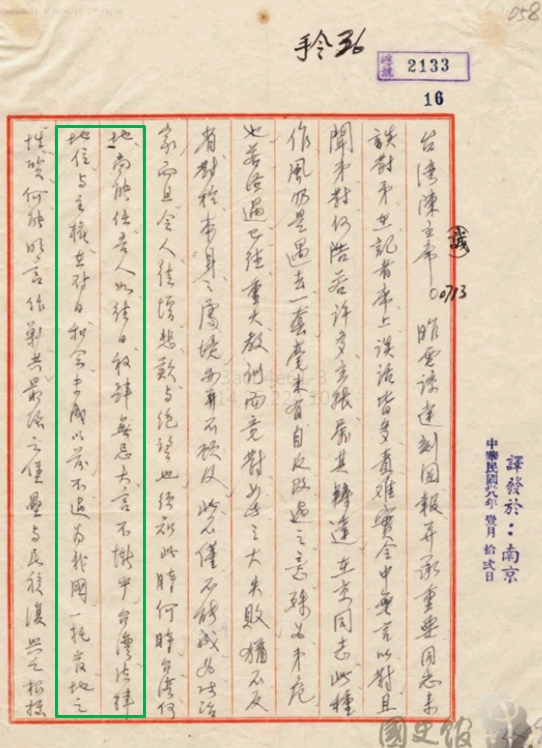 058
手令36
總號 2133
16
台灣陳主席(誠)00713 昨電諒達刻因報并承重要同志來
談對弟在記者席上談話皆多責難實令中無言以對且
聞弟對何浩若許多主張屬其轉達在京同志此種
作風仍是過去一套毫未有自反改過之意殊為弟危
也若經過已往重大教訓而竟對如此之大失敗猶不反
省對於本身之處境亦再不顧及此不僅不能成為政治
家而且令人徒增悲歎與絕望也須知此時何時台灣何
地尚能任吾人如往日放肆無忌大言不慚乎台灣法律
地位與主權在對日和會未成以前不過為我國一托管地之
性質何能明言作剿共最後之堡壘與民族復興之根據
譯發於：南京
中華民國卅八年壹月拾弍日
國史館